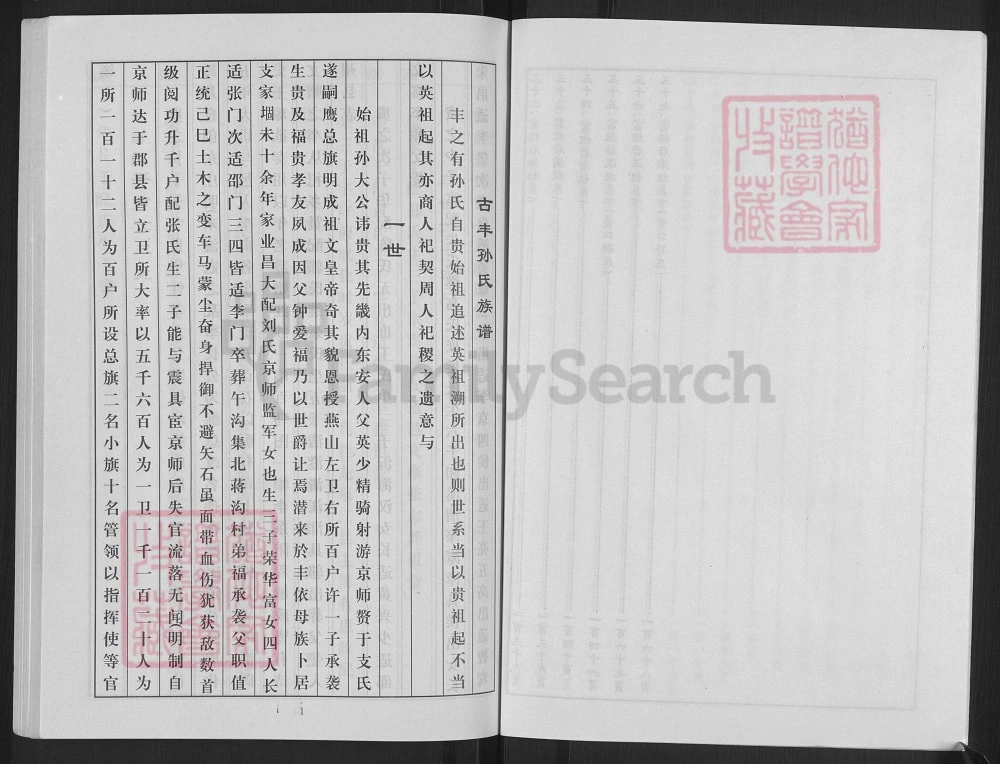 古丰孙氏族谱
丰之有孙氏自贵始祖追述英祖溯所出也则世系当以贵祖起不当
以英祖起其亦商人祀契周人祀稷之遗意与
一世
始祖孙大公讳贵其先畿内东安人父英少精骑射游京师赘于支氏
遂嗣鹰总旗明成祖文皇帝奇其貌恩授燕山左卫右所百户许一子承袭
生贵及福贵孝友夙成因父钟爱福乃以世爵让焉潜来於丰依母族卜居
支家堌未十余年家业昌大配刘氏京师监军女也生三子荣华富女四人长
适张门次适邵门三四皆适李门卒葬午沟集北蒋沟村弟福承袭父职值
正统己巳土木之变车马蒙尘奋身捍御不避矢石虽面带血伤犹获敌数首
级阅功升千户配张氏生二子能与震具宦京师后失官流落无闻(明制自
京师达于郡县皆立卫所大率以五千六百人为一卫一千一百二十人为
一所一百一十二人为百户所设总旗二名小旗十名管领以指挥使等官
1
FamilySearch
谱学会
收藏